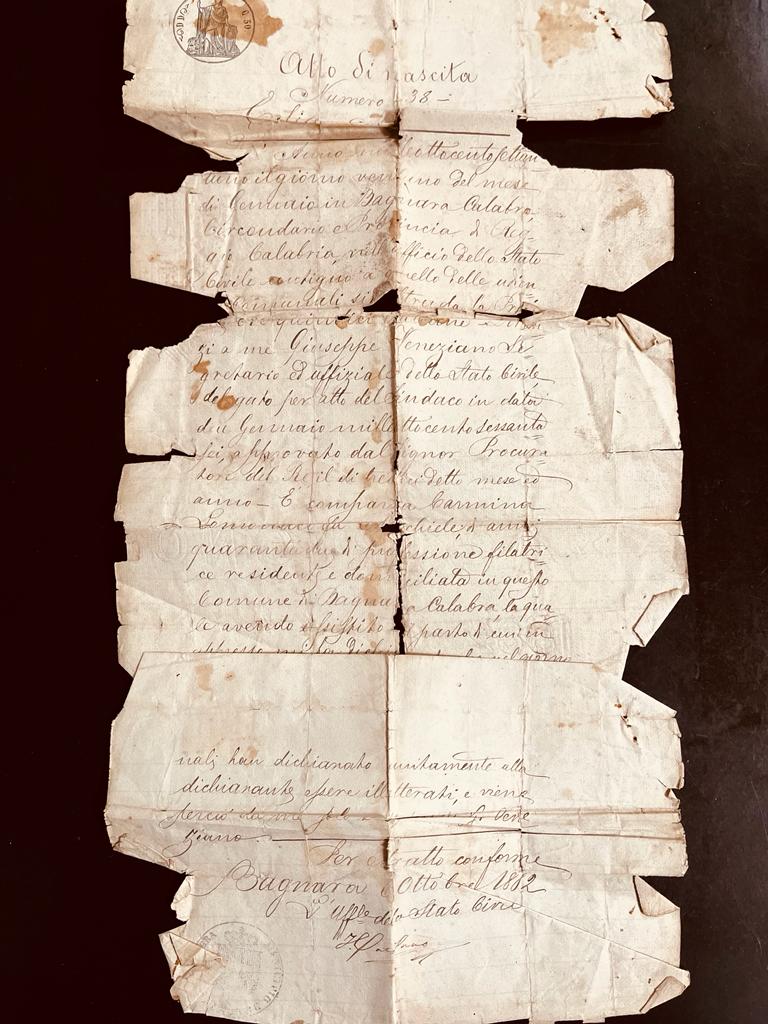 Atto di nascita
Numero 38 =
L'Anno milleottocentosettan
uno il giorno ventuno del mese
di Gennaio in Bagnara Calabra
Circondario e Provincia di Reg-
gio Calabria nell'ufficio dello Stato
Civile contiguo a quello delle
zi a me Giuseppe Veneziano Se
gretario ed uffiziale dello Stato Civile
delegato per atto del Sindaco in data
due Gennaio milleottocentosessanta
sei, approvato dal Signor Procura
tore del Re il di tredici detto mese ed
anno - E' comparsa Carmina
di anni
quarantadue di professione filatri
ce residente e domiciliata in questo
Comune di Bagnara Calabra la qua
le avendo assistito al parto di cui in
appresso mi ha dichiarato che nel giorno
nali han dichiarato unitamente alla
dichiarante essere illetterati, e viene
Vene
ziano.
Per estratto conforme
Bagnara Ottobre 1882
L'Uffle dello Stato Civile